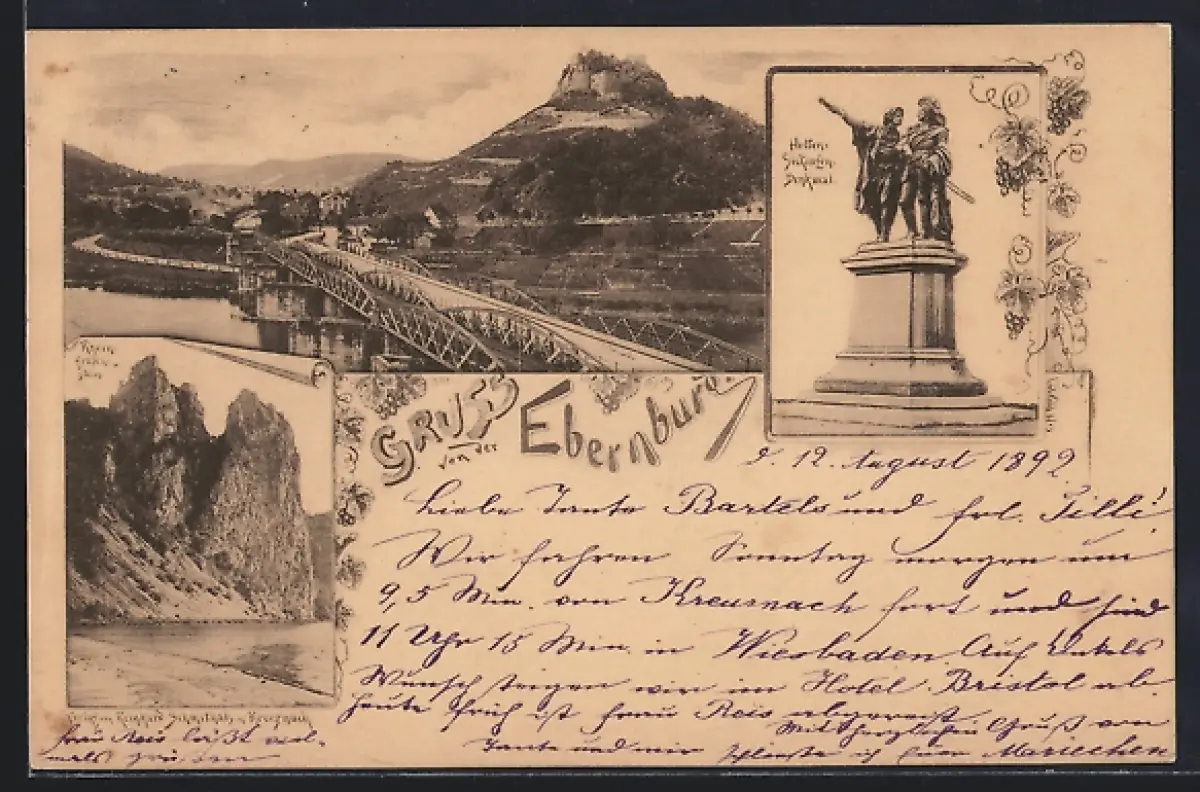 Hutten-
Sickingen-
Denkmal.
Rhein-
grafen-
stein
GRUSS
von der
Ebernburg
d. 12. August 1892
Liebe Tante Bartels und frl. Tilli!
Wir fahren Sonntag morgen um
9,5 Min. von Kreuznach fort und sind
11 Uhr 15 Min. in Wiesbaden. Auf Onkels
Wunsch steigen wir im Hotel Bristol ab.
heute früh ist frau Reis abgereist.
Mit herzlichem Gruß von
Tante und mir ich Euer Mariechen
frau Reis läßt viel-
mals grüßen